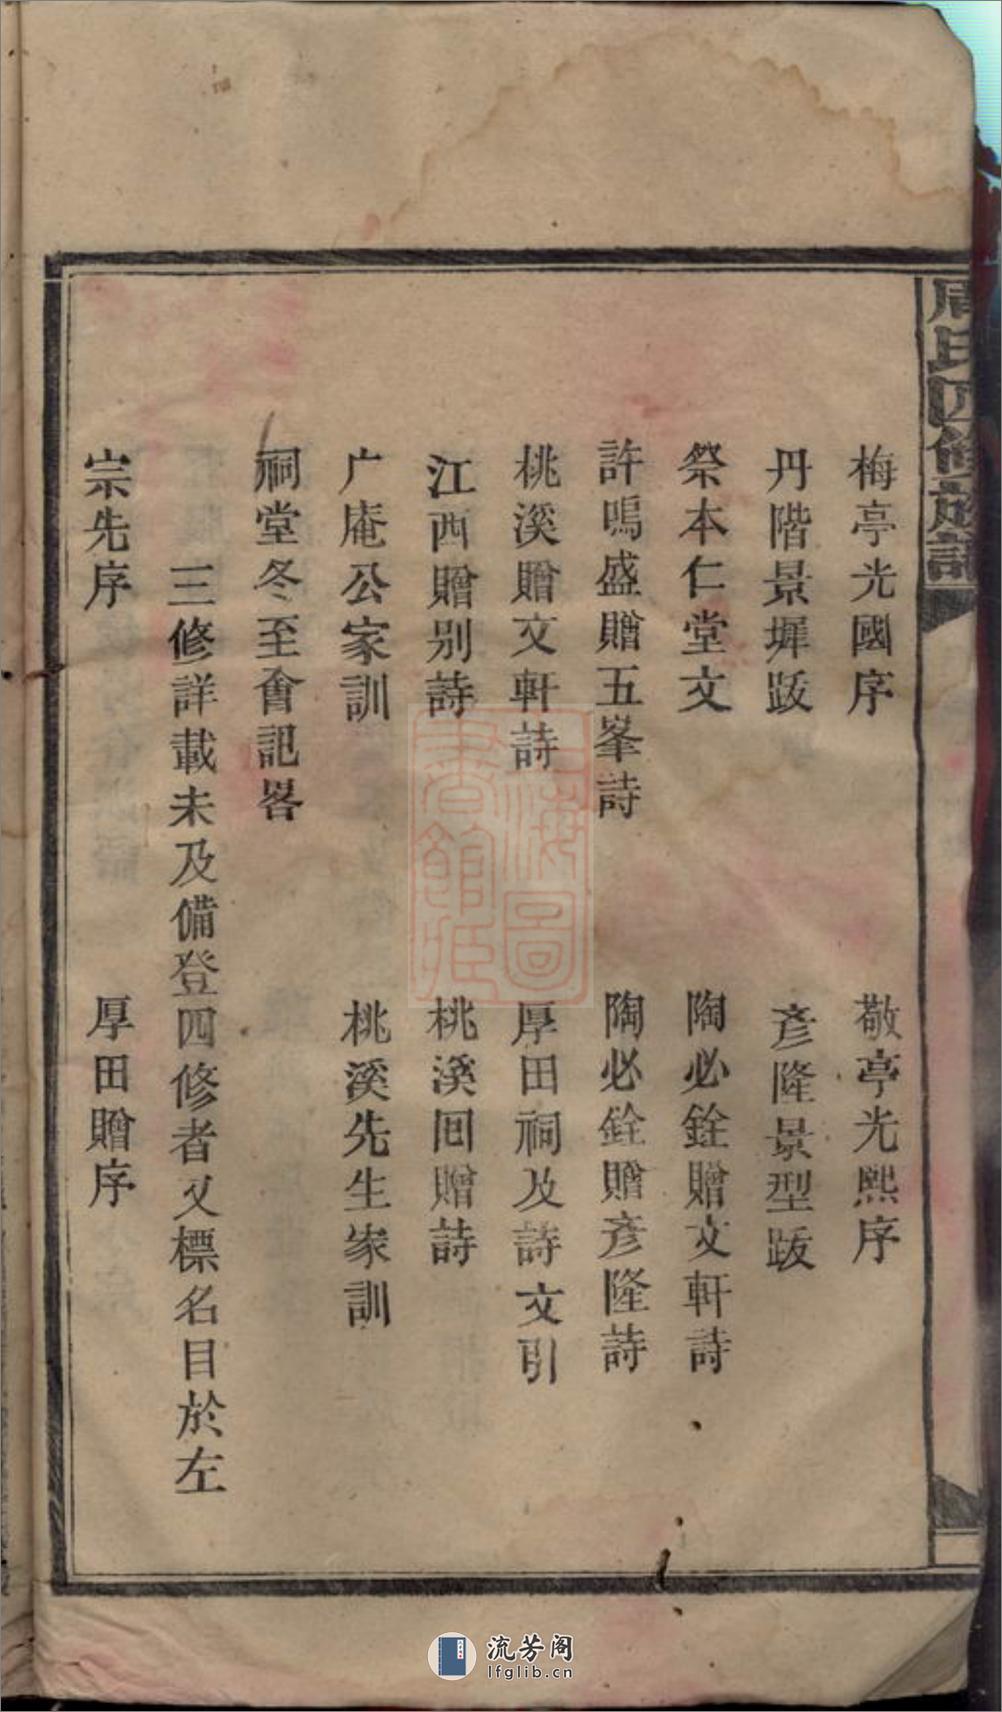 周氏四修族譜
梅亭光國序　敬亭光熙序
丹階景墀跋　彥隆景型跋
祭本仁堂文　陶必銓贈文軒詩
許鳴盛贈五峯詩　陶必銓贈彥隆詩
桃溪贈文軒詩　厚田祠及詩文引
江西贈別詩　桃溪回贈詩
广庵公家訓　桃溪先生家訓
祠堂冬至會記畧
三修詳載未及備登四修者又標名目於左
宗先序　厚田贈序
上海圖書館藏
流芳阁
lfglib.cn